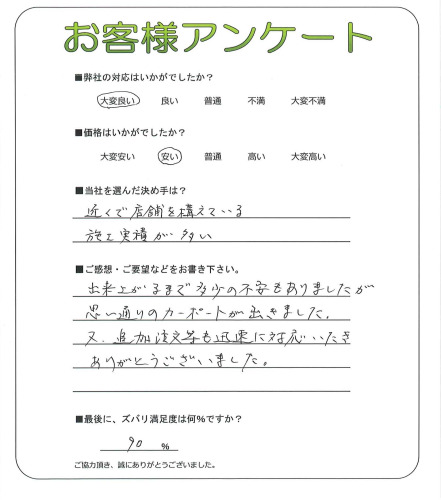 お客様アンケート
■弊社の対応はいかがでしたか？
大変良い 良い 普通 不満 大変不満
■価格はいかがでしたか？
大変安い 安い 普通 高い 大変高い
■当社を選んだ決め手は？
近くで店舗を構えている
施工実績が多い
■ご感想・ご要望などをお書き下さい。
出来上がるまで多少の不安もありましたが
思い通りのカーポートが出きました。
又、追加注文等も迅速に対応いただき
ありがとうございました。
■最後に、ズバリ満足度は何％ですか？
90 ％
ご協力頂き、誠にありがとうございました。